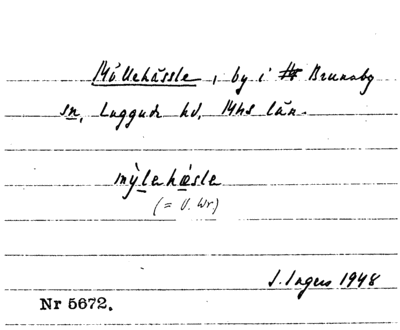 Möllehässle, by i Brunnby
sn, Luggude hd, Mhs län.
mỳlehǽsle
(= V. Wr)
I. Ingers 1948
Nr 5672.